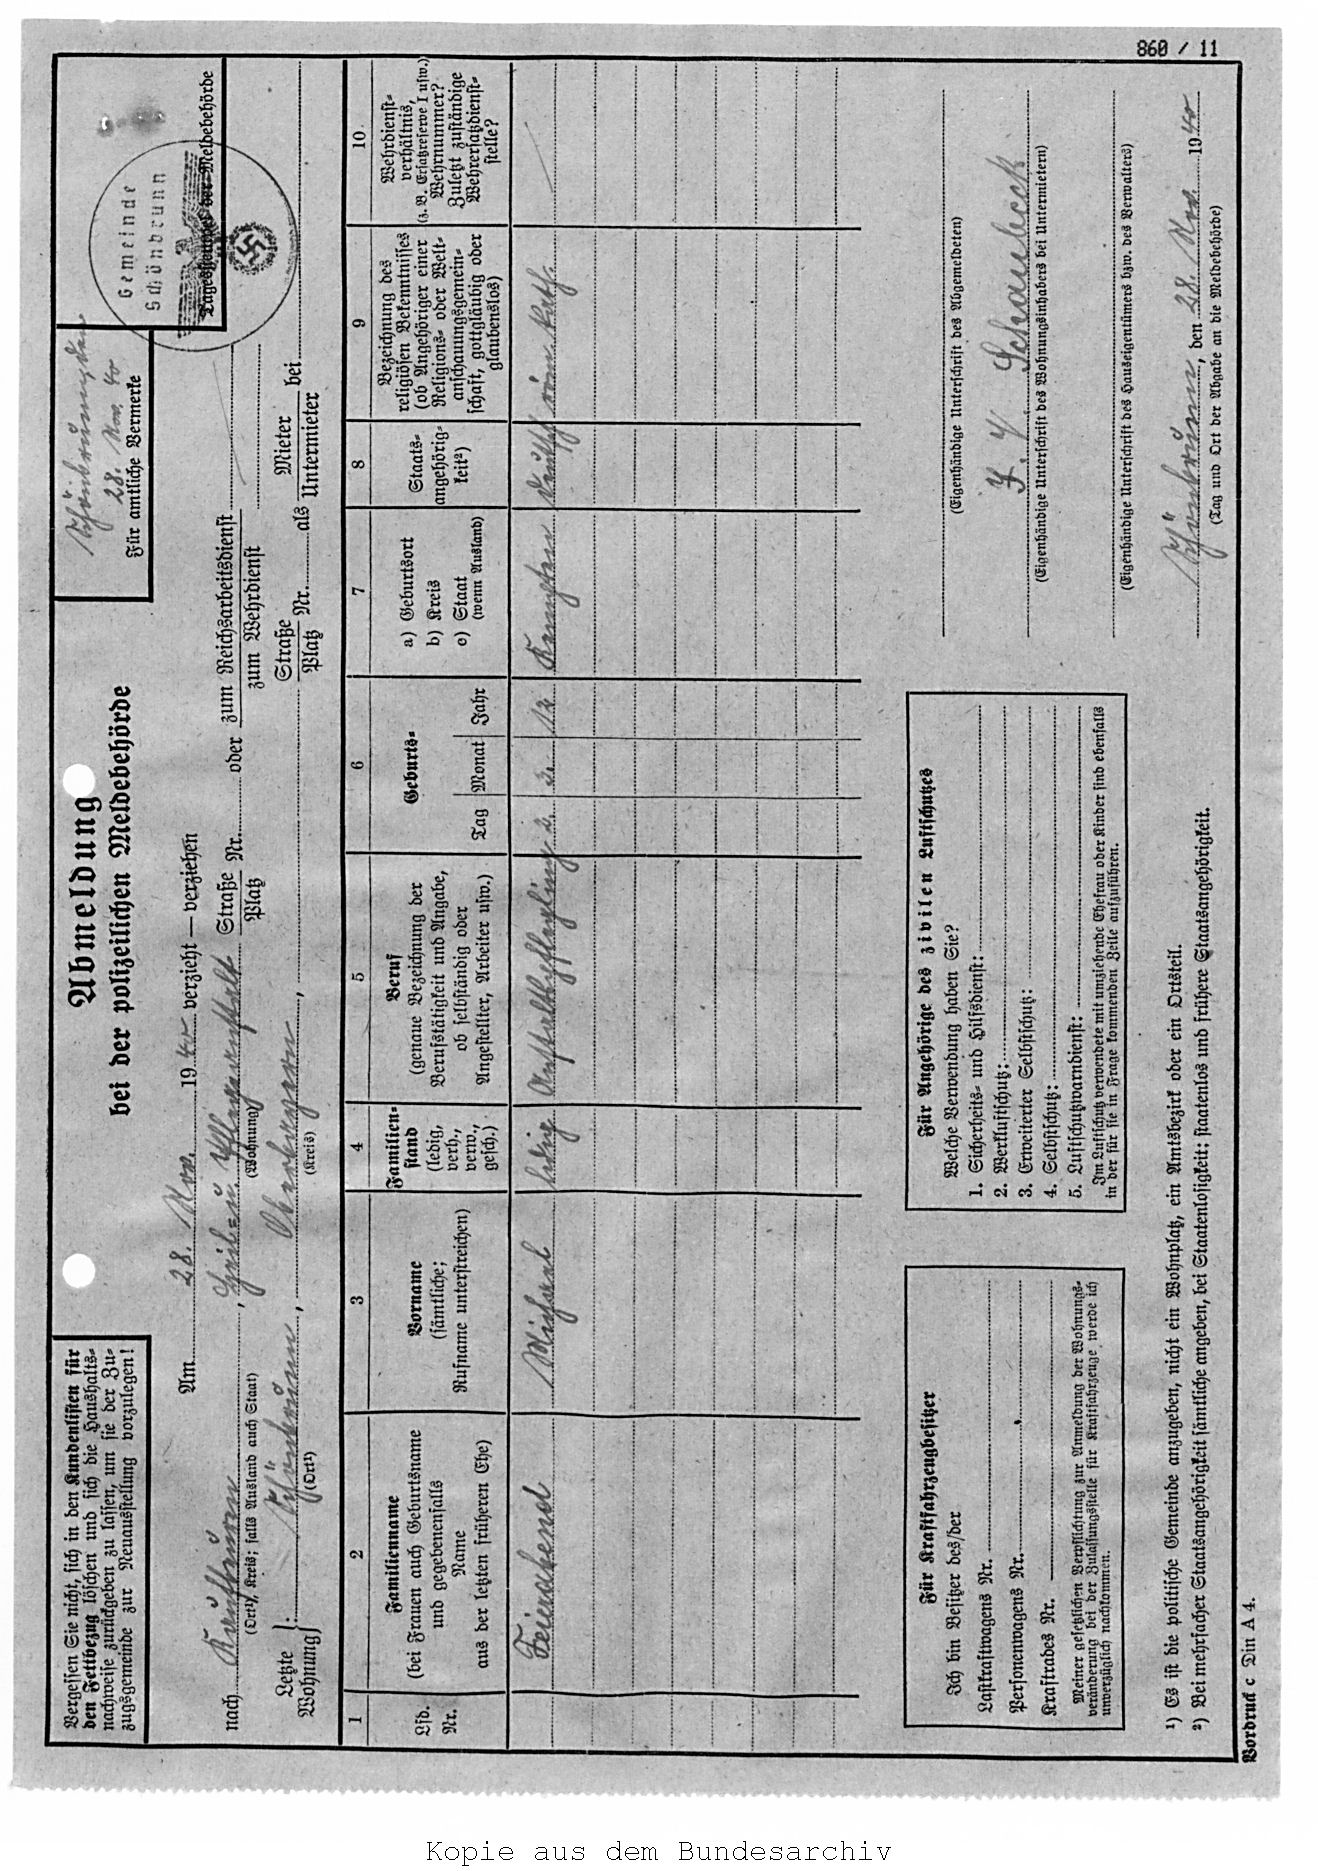 860 / 11
Vergessen Sie nicht, sich in den Kundenlisten für
den Fettbezug löschen und sich die Haushalts-
nachweise zurückgeben zu lassen, um sie der Zu-
zugsgemeinde zur Neuausstellung vorzulegen!
Abmeldung
bei der polizeilichen Meldebehörde
Schönbrunn, den
28. Nov. 40
Für amtliche Vermerke
Gemeinde
Schönbrunn
Tagesstempel der Meldebehörde
Am 28. Nov. 1940 verzieht — verziehen
nach Kaufbeuren, Heil= u. Pflegeanstalt Straße/Platz Nr. oder zum Reichsarbeitsdienst
zum Wehrdienst
(Ort¹), Kreis; falls Ausland auch Staat) (Wohnung)
Letzte Wohnung: Schönbrunn, Oberbayern, Straße/Platz Nr. als Mieter/Untermieter bei
(Ort¹) (Kreis)
1
Lfd. Nr.
2
Familienname
(bei Frauen auch Geburtsname
und gegebenenfalls
Name
aus der letzten früheren Ehe)
3
Vorname
(sämtliche;
Rufname unterstreichen)
4
Familien-
stand
(ledig,
verh.,
verw.,
gesch.)
5
Beruf
(genaue Bezeichnung der
Berufstätigkeit und Angabe,
ob selbständig oder
Angestellter, Arbeiter usw.)
6
Geburts-
Tag Monat Jahr
7
a) Geburtsort
b) Kreis
c) Staat
(wenn Ausland)
8
Staats-
angehörig-
keit²)
9
Bezeichnung des
religiösen Bekenntnisses
(ob Angehöriger einer
Religions- oder Welt-
anschauungsgemein-
schaft, gottgläubig oder
glaubenslos)
10
Wehrdienst-
verhältnis,
(z. B. Ersatzreserve I usw.)
Wehrnummer?
Zuletzt zuständige
Wehrersatzdienst-
stelle?
Feierabend Michael ledig Anstaltspflegling 2. 2. 12 Kempten deutsch röm. kath.
Für Kraftfahrzeugbesitzer
Ich bin Besitzer des/der
Lastkraftwagens Nr.
Personenwagens Nr.
Kraftrades Nr.
Meiner gesetzlichen Verpflichtung zur Anmeldung der Wohnungs-
veränderung bei der Zulassungsstelle für Kraftfahrzeuge werde ich
unverzüglich nachkommen.
Für Angehörige des zivilen Luftschutzes
Welche Verwendung haben Sie?
1. Sicherheits- und Hilfsdienst:
2. Werkluftschutz:
3. Erweiterter Selbstschutz:
4. Selbstschutz:
5. Luftschutzwarndienst:
Im Luftschutz verwendete mit umziehende Ehefrau oder Kinder sind ebenfalls
in der für sie in Frage kommenden Zeile aufzuführen.
(Eigenhändige Unterschrift des Abgemeldeten)
Schaubeck
(Eigenhändige Unterschrift des Wohnungsinhabers bei Untermietern)
(Eigenhändige Unterschrift des Hauseigentümers bzw. des Verwalters)
Schönbrunn, den 28. Nov. 1940
(Tag und Ort der Abgabe an die Meldebehörde)
¹) Es ist die politische Gemeinde anzugeben, nicht ein Wohnplatz, ein Amtsbezirk oder ein Ortsteil.
²) Bei mehrfacher Staatsangehörigkeit sämtliche angeben, bei Staatenlosigkeit: staatenlos und frühere Staatsangehörigkeit.
Vordruck c Din A 4.
Kopie aus dem Bundesarchiv